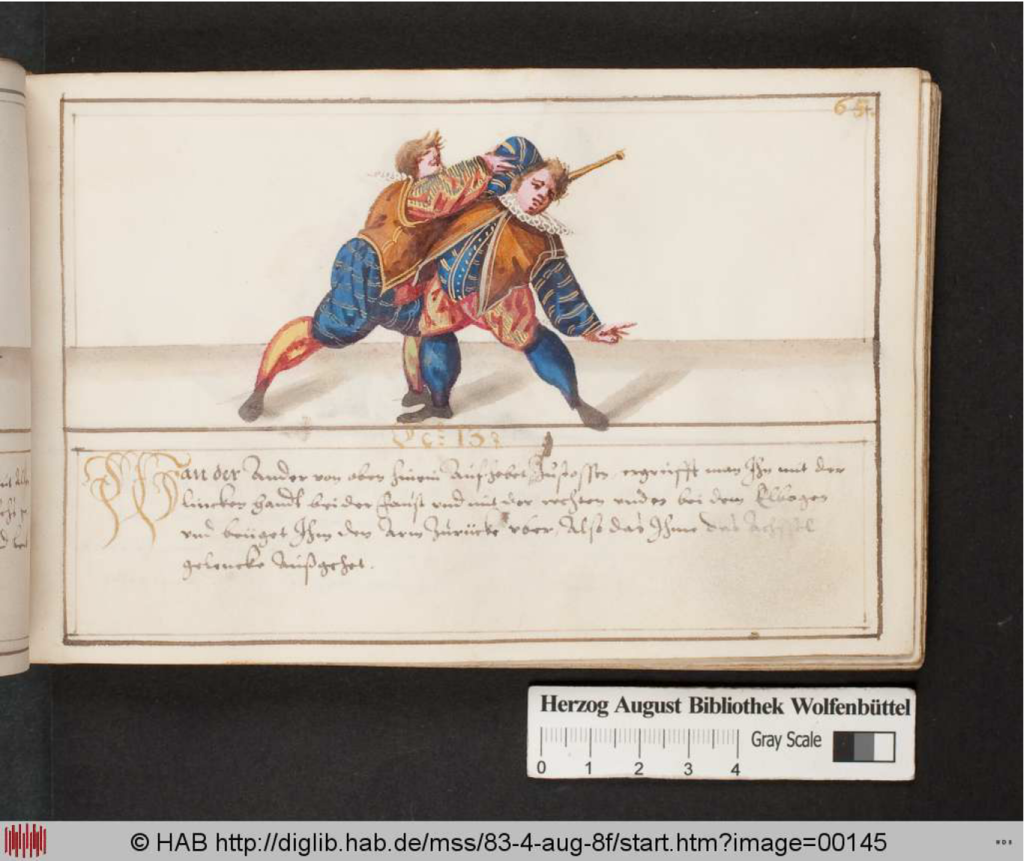 65.
13
Wan der Ander von oben hinein Aufhebet Zustossen, ergreifft man Ihn mit der
lincken handt bei der faust vnd mit der rechten vnden bei dem Elbogen
vnd beüget Ihm den Arm Zurücke vber, Also das Ihme das Achssel
gelencke Außgehet.
Herzog August Bibliothek Wolfenbüttel
Gray Scale
0 1 2 3 4
© HAB http://diglib.hab.de/mss/83-4-aug-8f/start.htm?image=00145